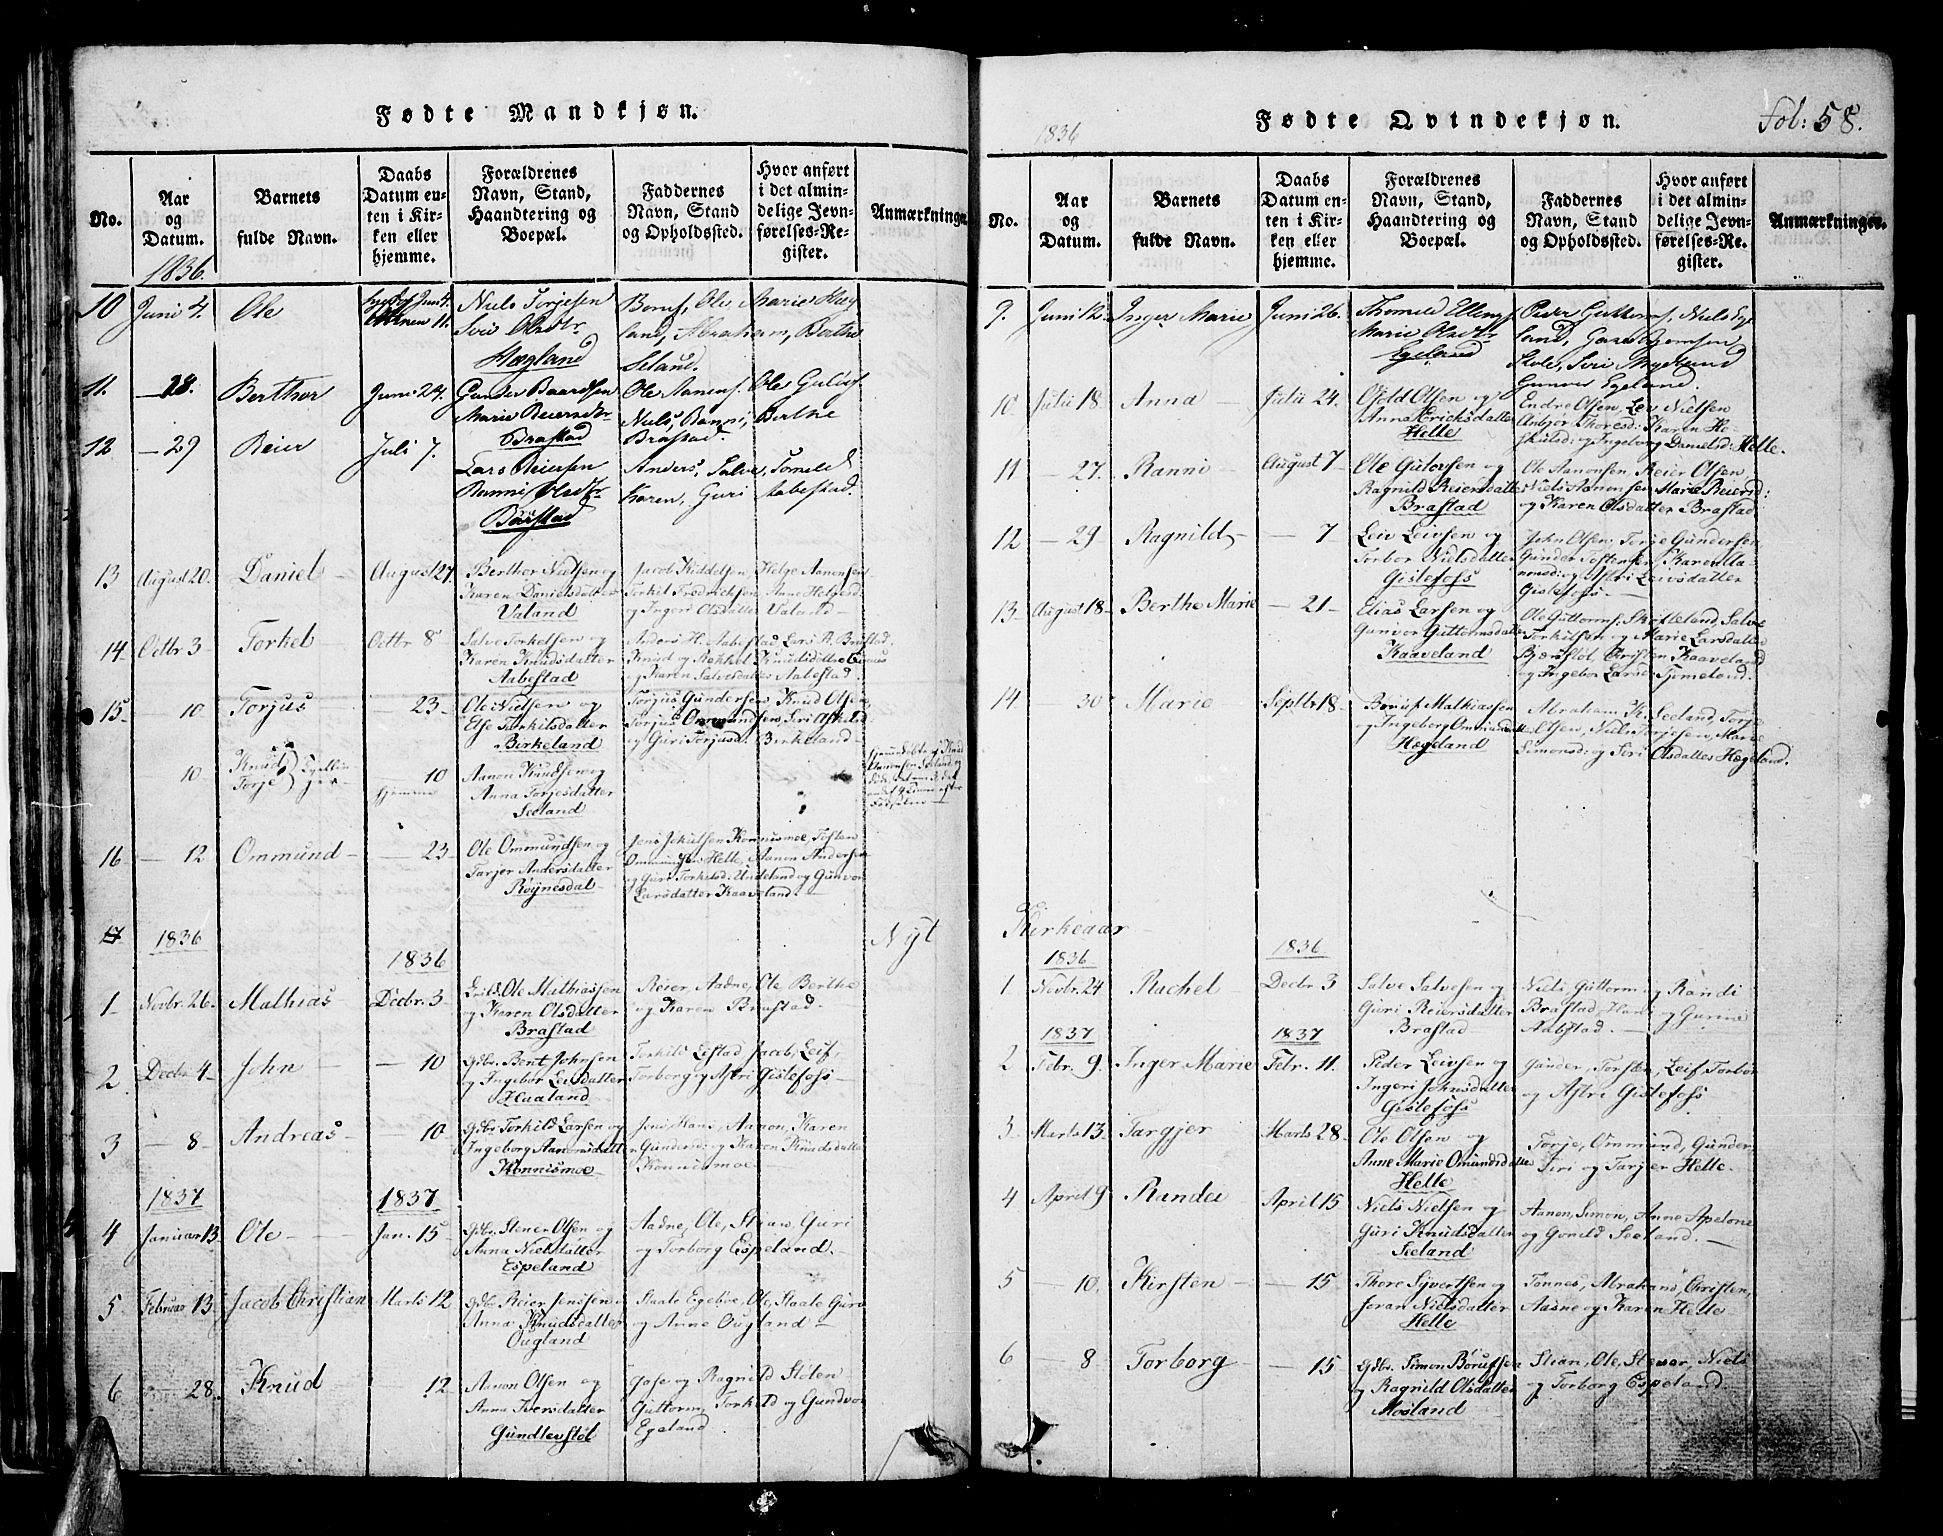 Fødte Mandkjøn.
No.
Aar og Datum.
Barnets fulde Navn.
Daabs Datum enten i Kirken eller hjemme.
Forældrenes Navn, Stand, Haandtering og Boepæl.
Faddernes Navn, Stand og Opholdssted.
Hvor anført i det almindelige Jevnførelses-Register.
Anmærkninger.
1836
10 Juni 4. Ole
Niels Torjesen
Siri Olsdtr
Hægland
Boruf, Ole, Marie Hægland, Abraham, Berthe
Seland.
11. — 28. Berthor Juni 24.
Gunder Baardsen
Marie Reiersdtr
Brastad
Ole Aanens. Ole Gutors.
Niels, Ranni, Berthe
Brastad.
12 — 29 Reier Juli 7.
Lars Reiersen
Ranni Olsdtr
Bøistad
Anders, Salve, Tomeld
Karen, Guri Aabestad.
13 August 20. Daniel August 27
Berthor Nielsen og
Karen Danielsdatter
Valand
Jacob Kiddelsen, Helge Aanonsen
Torkil Fredricksen, Anne Helgesd
og Ingeri Olsdatter Valand —
14 Octbr 3 Torkel Octbr 8
Salve Torkelsen og
Karen Knudsdatter
Aabestad
Anders H. Aabestad, Lars R. Brastad,
Knud og Rakkel Knudsdøttre
og Karen Salvesdatter Aabestad.
15 10 Torjus — 23
Ole Nielsen og
Else Torkilsdatter
Birkeland
Torjus Gundersen, Knud Olsen,
Torjus Ommundsen, Siri Aslaksd
og Guri Torjusd. Birkeland
— 10 Knud
Torje
— 10
hjemme
Aanon Knudsen og
Anna Torjesdatter
Seeland
16 — 12 Ommund — 23
Ole Ommundsen og
Tarjer Andersdatter
Røynesdal
Jens Jokulsen Konnismoe, Tosten
Ommundsen Helle, Aanon Andersen
og Guri Torkilsd: Undeland og Gunvor
Larsdatter Kaaveland.
17 1836 1836 Nyt
1 Novbr. 26. Mathias Decbr. 3
Ole Mathiassen
og Karen Olsdatter
Brastad
Reier, Aadne, Ole Berthe
og Karen Brastad.
2 Decbr 4 John — 10
Gdbr. Bent Johnsen
og Ingebor Leivsdatter
Haaland
Torkild Listad, Jacob, Leif,
Torborg og Astri Gislefoss
3 — 8 Andreas — 10
Gdbr Torkild Larsen og
Ingeborg Aanonsdatt
Konnismoe
Jens, Hans, Aanon, Karen
Gundersd: og Karen Knudsdatter
Konnismoe
1837 1837
4 Januar 13. Ole Jan. 15
Gdbr. Stener Olsen og
Anna Nielsdatter
Espeland
Aadne, Ole, Stian, Guri
og Torborg Espeland.
5 Februar 13. Jacob Christian Marts 12
Gdbr. Reier Jensen
Anna Knudsdatter
Ougland
Staale Egeboe, Ole, Staale Guri
og Anne Ougland
6 — 28. Knud — 12
Aanon Olsen og
Anna Iversdatter
Gundlevstøl
Jose og Ragnild Stølen
Guttorm, Torkild og Gundvor
Egeland
1836
Fødte Qvindekjøn.
Fol: 58.
No.
Aar og Datum.
Barnets fulde Navn.
Daabs Datum enten i Kirken eller hjemme.
Forældrenes Navn, Stand, Haandtering og Boepæl.
Faddernes Navn, Stand og Opholdssted.
Hvor anført i det almindelige Jevnførelses-Register.
Anmærkninger.
9. Juni 12. Inger Marie Juni 26.
Thomeld Ellings.
Marie Olsdtr
Egeland
Peder Guttorms, Niels Egeland,
Siri
Gunvor Egeland.
10 Julii 18 Anna — Julii 24.
Osfold Olsen og
Anna Erichsdatter
Helle
Endre Olsen, Lev Nielsen
Anbjor Thoresd: Karen
og Ingeborg Danielsd: Helle.
11 — 27. Ranni — August 7
Ole Gutorsen og
Ragnild Reiersdatter
Brastad
Ole Aanonsen, Reier Olsen
Niels Aanensen Marie Reiersd:
og Karen Olsdatter Brastad
12 — 29 Ragnild — 7
Leiv Leivsen og
Torbor Nielsdatter
Gislefoss
John Olsen, Torje Gundersen
Gunder Tostensen, Karen Aanonsd: og Astri Leivsdatter
Gislefoss
13 August 18 Berthe Marie — 21
Elias Larsen og
Gunvor Guttormsdatter
Kaaveland
Ole Guttorms. Skofteland, Salve
Torkilsen og Marie Larsdatter
Bjærstøl, Christen Kaaveland
og Ingebor Larsd: Tjomeland.
14 30 Marie — Septbr 18
Boruf Mathiassen
og Ingeborg Ommundsd
Hægeland
Abraham K. Seeland, Torje
Elsen, Niels Torjesen, Marie
Simonsd: og Siri Olsdatter Hægeland.
Kirkeaar
1836 1836
1 Novbr. 24 Rachel — Decbr 3
Salve Salvesen og
Guri Reiersdatter
Brastad
Niels, Guttorm og Randi
Brastad, Hans og Gurine
Aabestad.
1837 1837
2 Febr. 9. Inger Marie Febr. 11.
Peder Leivsen og
Ingeri Johnsdatter
Gislefoss
Gunder, Torsten, Leif, Torbor
og Astri Gislefoss
3 Marts 13. Targjer Marts 28
Ole Olsen og
Anne Marie Omundsdatter
Helle
Torje, Ommund, Gunder
Siri og Tarjer Helle.
4 April 9 Rundei April 15
Niels Nielsen og
Guri Knudsdatter
Seeland
Aanon, Simon, Anne Apelone
og Gonild Seeland.
5 — 10. Kirsten — 15
Thore Sivertsen og
Joran Nielsdatter
Helle
Tonnes, Abraham, Christen,
Aasne og Karen Helle
6 8 Torborg — 15
Gdbr. Simon Børufsen
og Ragnild Olsdatter
Mosland
Stian, Ole, Stener, Niels
og Torborg Espeland.